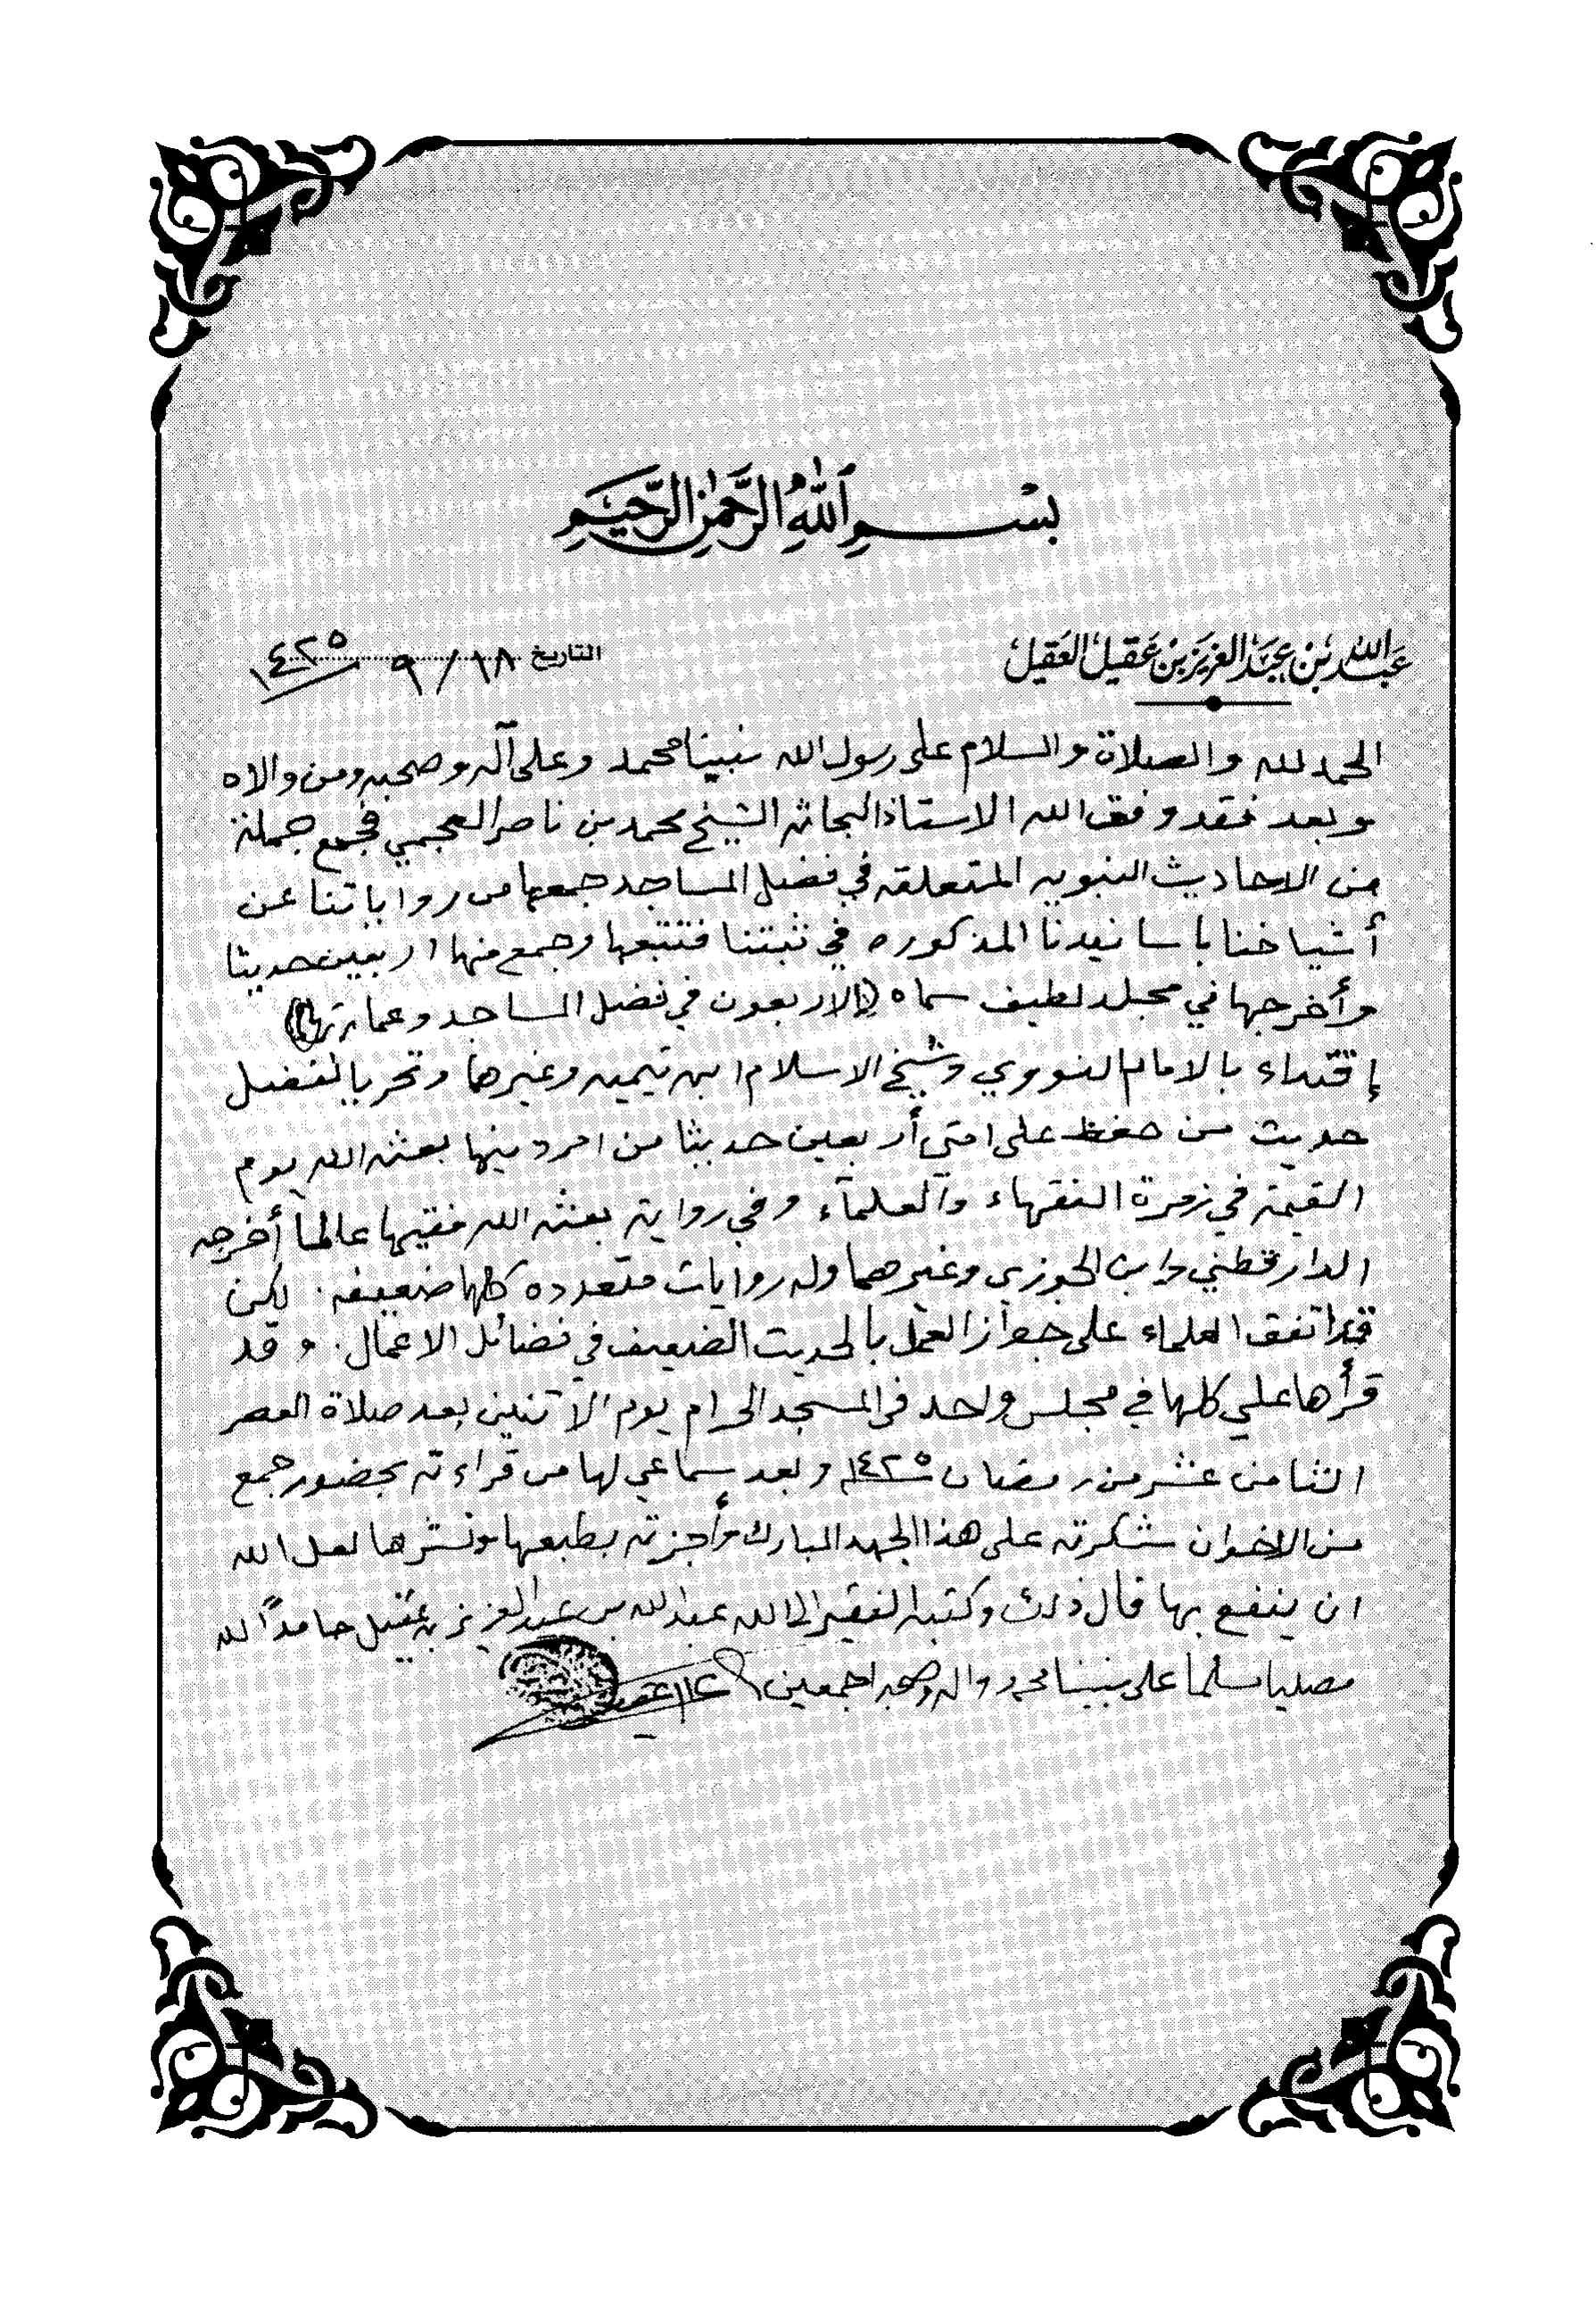 بسم الله الرحمن الرحيم
عبد الله بن عبد العزيز بن عقيل العقيل
التاريخ ١٨ / ٩ ١٤٢٥
الحمد لله والصلاة والسلام على رسول الله نبينا محمد وعلى آله وصحبه ومن والاه
وبعد فقد وفق الله الاستاذ البحاثه الشيخ محمد بن ناصر العجمي فجمع جملة
من الاحاديث النبويه المتعلقه في فضل المساجد جمعها من رواياتنا عن
أشياخنا باسانيدنا المذكوره في ثبتنا فتتبعها وجمع منها اربعين حديثا
وأخرجها في مجلد لطيف سماه (الاربعون في فضل المساجد وعمارتها)
إقتداء بالامام النووي وشيخ الاسلام ابن تيميه وغيرهما وتحريا لفضل
حديث من حفظ على امتي أربعين حديثا من امر دينها بعثه الله يوم
القيمة في زمرة الفقهاء والعلماء وفي رواية بعثه الله فقيها عالما أخرجه
الدارقطني وابن الجوزي وغيرهما وله روايات متعدده كلها ضعيفه. لكن
قد اتفق العلماء على جواز العمل بالحديث الضعيف في فضائل الاعمال. وقد
قرأها علي كلها في مجلس واحد في المسجد الحرام يوم الاثنين بعد صلاة العصر
الثامن عشر من رمضان ١٤٢٥ وبعد سماعي لها من قراءته بحضور جمع
من الاخوان شكرته على هذا الجهد المبارك وأجزته بطبعها ونشرها لعل الله
ان ينفع بها قال ذلك وكتبه الفقير الى الله عبد الله بن عبد العزيز بن عقيل حامداً لله
مصليا مسلما على نبينا محمد واله وصحبه اجمعين